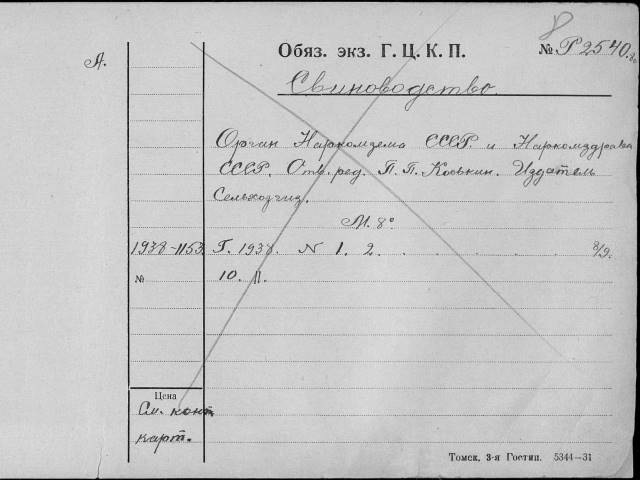 8
Обяз. экз. Г. Ц. К. П. № Р2540
А.
Свиноводство.
Орган Наркомзема СССР. и Наркомздрава
СССР. Отв. ред. П. П. Коськин. Издатель
Сельхозгиз.
М. 8°
1938-1153 Г. 1938. N 1. 2. . . . . . . 8/9.
№ 10. 11.
Цена
См. конт
карт.
Томск, 3-я Гостип. 5344—31